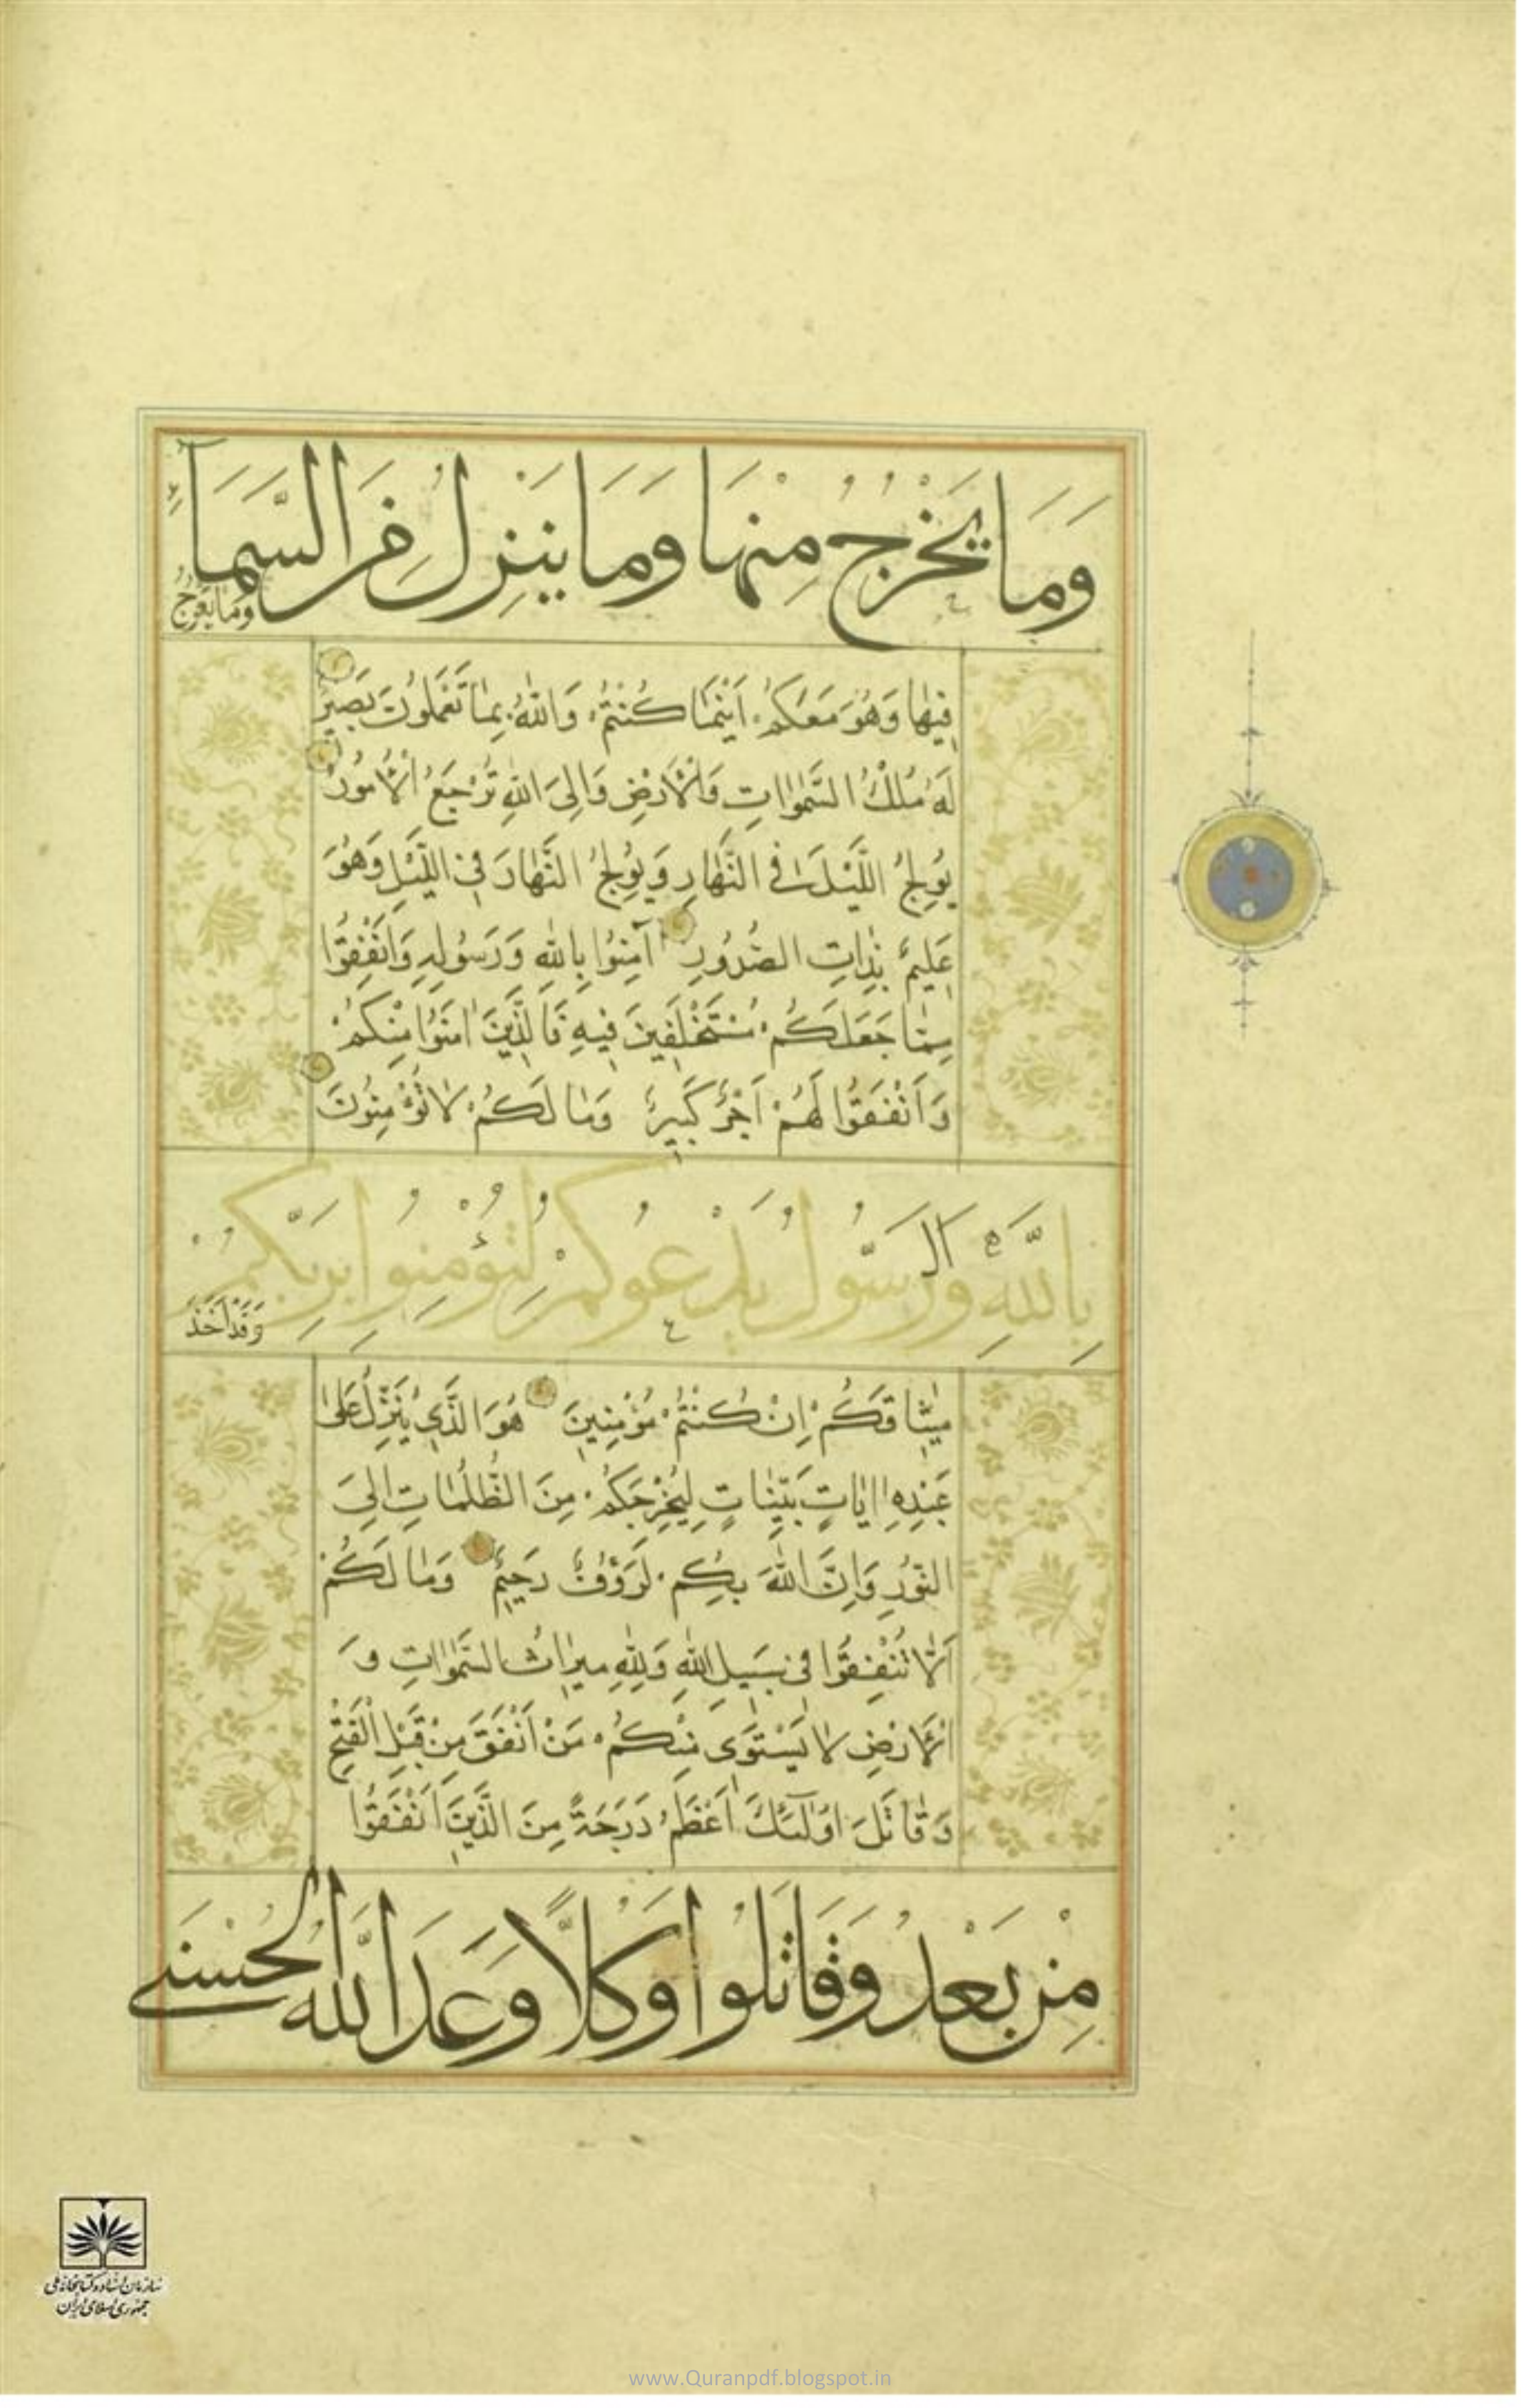 وَمَا يَخْرُجُ مِنْهَا وَمَا يَنْزِلُ مِنَ السَّمَآءِ
وَمَا يَعْرُجُ
فِيهَا وَهُوَ مَعَكُمْ اَيْنَمَا كُنْتُمْ وَاللّٰهُ بِمَا تَعْمَلُونَ بَصِيرٌ
لَهُ مُلْكُ السَّمٰوَاتِ وَالْاَرْضِ وَاِلَى اللّٰهِ تُرْجَعُ الْاُمُورُ
يُولِجُ اللَّيْلَ فِى النَّهَارِ وَيُولِجُ النَّهَارَ فِى اللَّيْلِ وَهُوَ
عَلِيمٌ بِذَاتِ الصُّدُورِ آمِنُوا بِاللّٰهِ وَرَسُولِهِ وَاَنْفِقُوا
مِمَّا جَعَلَكُمْ مُسْتَخْلَفِينَ فِيهِ فَالَّذِينَ اٰمَنُوا مِنْكُمْ
وَاَنْفَقُوا لَهُمْ اَجْرٌ كَبِيرٌ وَمَا لَكُمْ لَا تُؤْمِنُونَ
بِاللّٰهِ وَالرَّسُولُ يَدْعُوكُمْ لِتُؤْمِنُوا بِرَبِّكُمْ
وَقَدْ اَخَذَ
مِيثَاقَكُمْ اِنْ كُنْتُمْ مُؤْمِنِينَ هُوَ الَّذِى يُنَزِّلُ عَلٰى
عَبْدِهِ اٰيَاتٍ بَيِّنَاتٍ لِيُخْرِجَكُمْ مِنَ الظُّلُمَاتِ اِلَى
النُّورِ وَاِنَّ اللّٰهَ بِكُمْ لَرَؤُفٌ رَحِيمٌ وَمَا لَكُمْ
اَلَّا تُنْفِقُوا فِى سَبِيلِ اللّٰهِ وَلِلّٰهِ مِيرَاثُ السَّمٰوَاتِ وَ
الْاَرْضِ لَا يَسْتَوِى مِنْكُمْ مَنْ اَنْفَقَ مِنْ قَبْلِ الْفَتْحِ
وَقَاتَلَ اُولٰٓئِكَ اَعْظَمُ دَرَجَةً مِنَ الَّذِينَ اَنْفَقُوا
مِنْ بَعْدُ وَقَاتَلُوا وَكُلًّا وَعَدَ اللّٰهُ الْحُسْنٰى
سازمان اسناد و کتابخانه ملی
جمهوری اسلامی ایران
www.Quranpdf.blogspot.in